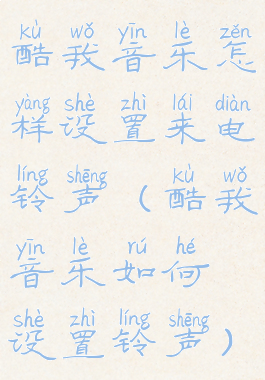 kù wǒ yīn lè zěn
酷我音乐怎
yàng shè zhì lái diàn
样设置来电
líng shēng kù wǒ
铃声（酷我
yīn lè rú hé
音乐如何
shè zhì líng shēng
设置铃声）